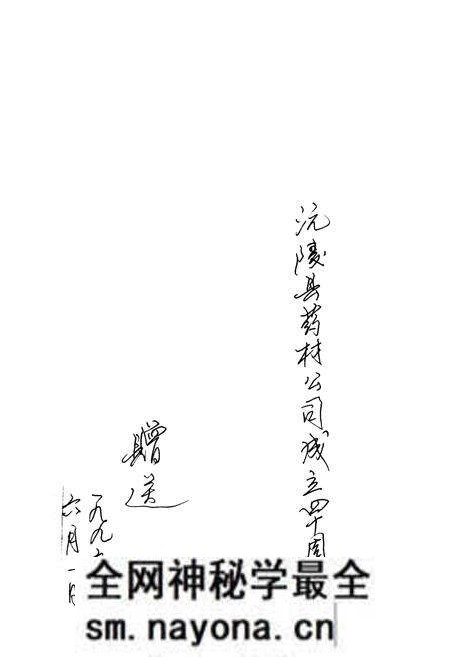 沅陵县药材公司成立四十周
赠送
一九九
六月一日
全网神秘学最全
sm.nayona.cn